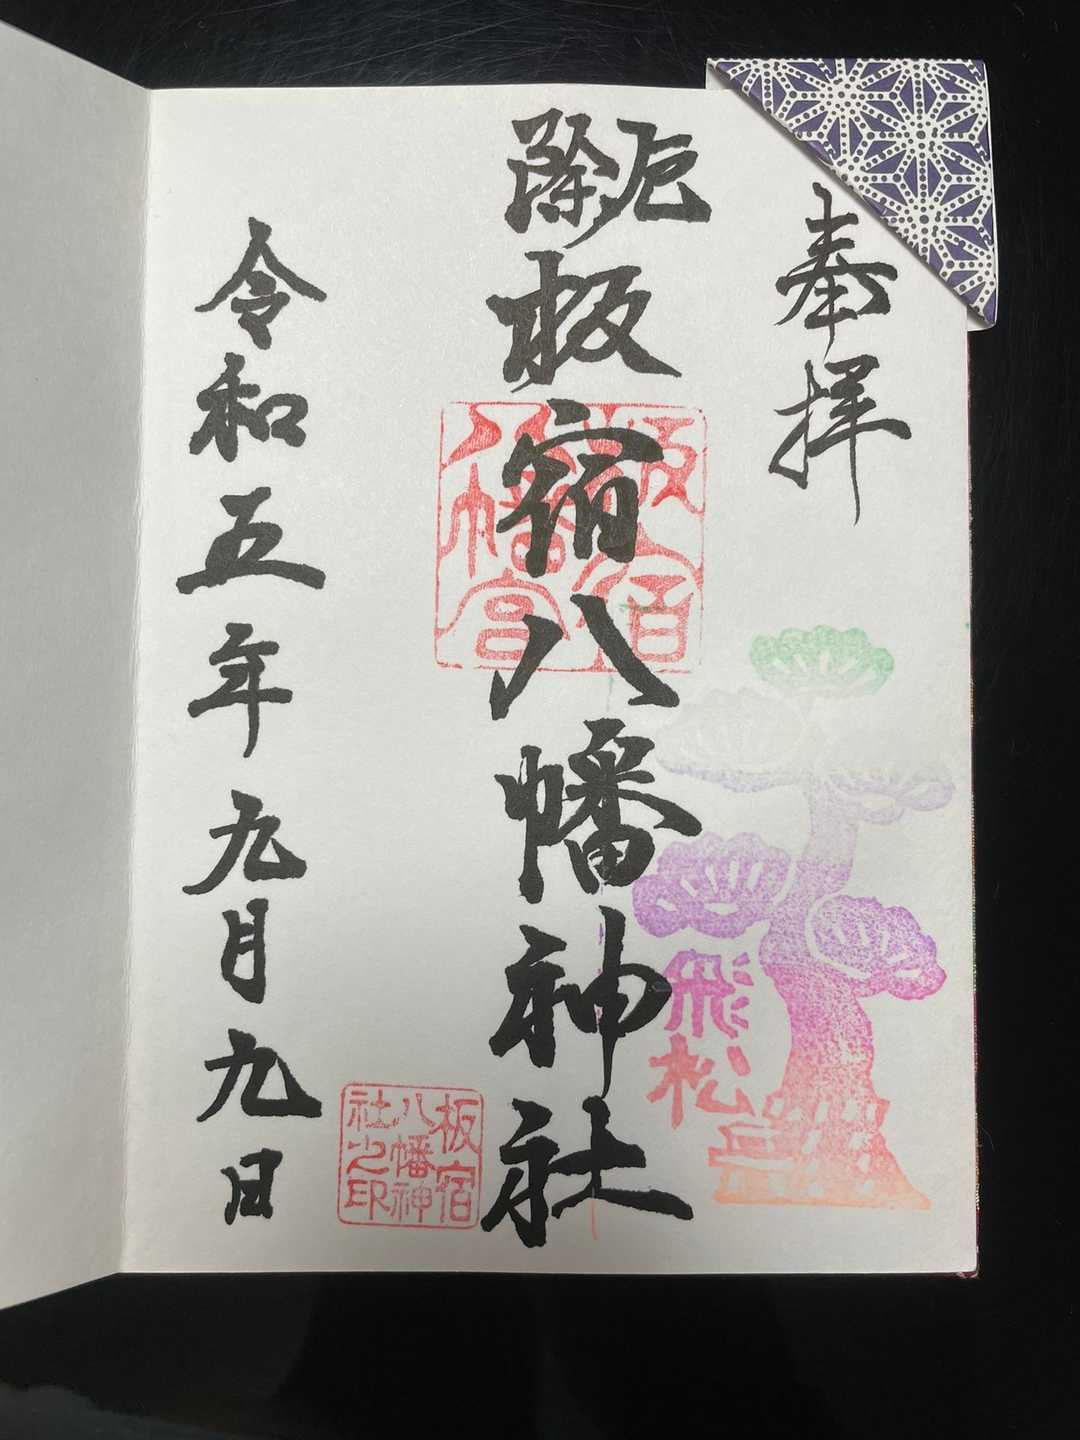 奉拝
厄除
板宿八幡神社
板宿
八幡宮
飛松
板宿
八幡神
社之印
令和五年九月九日